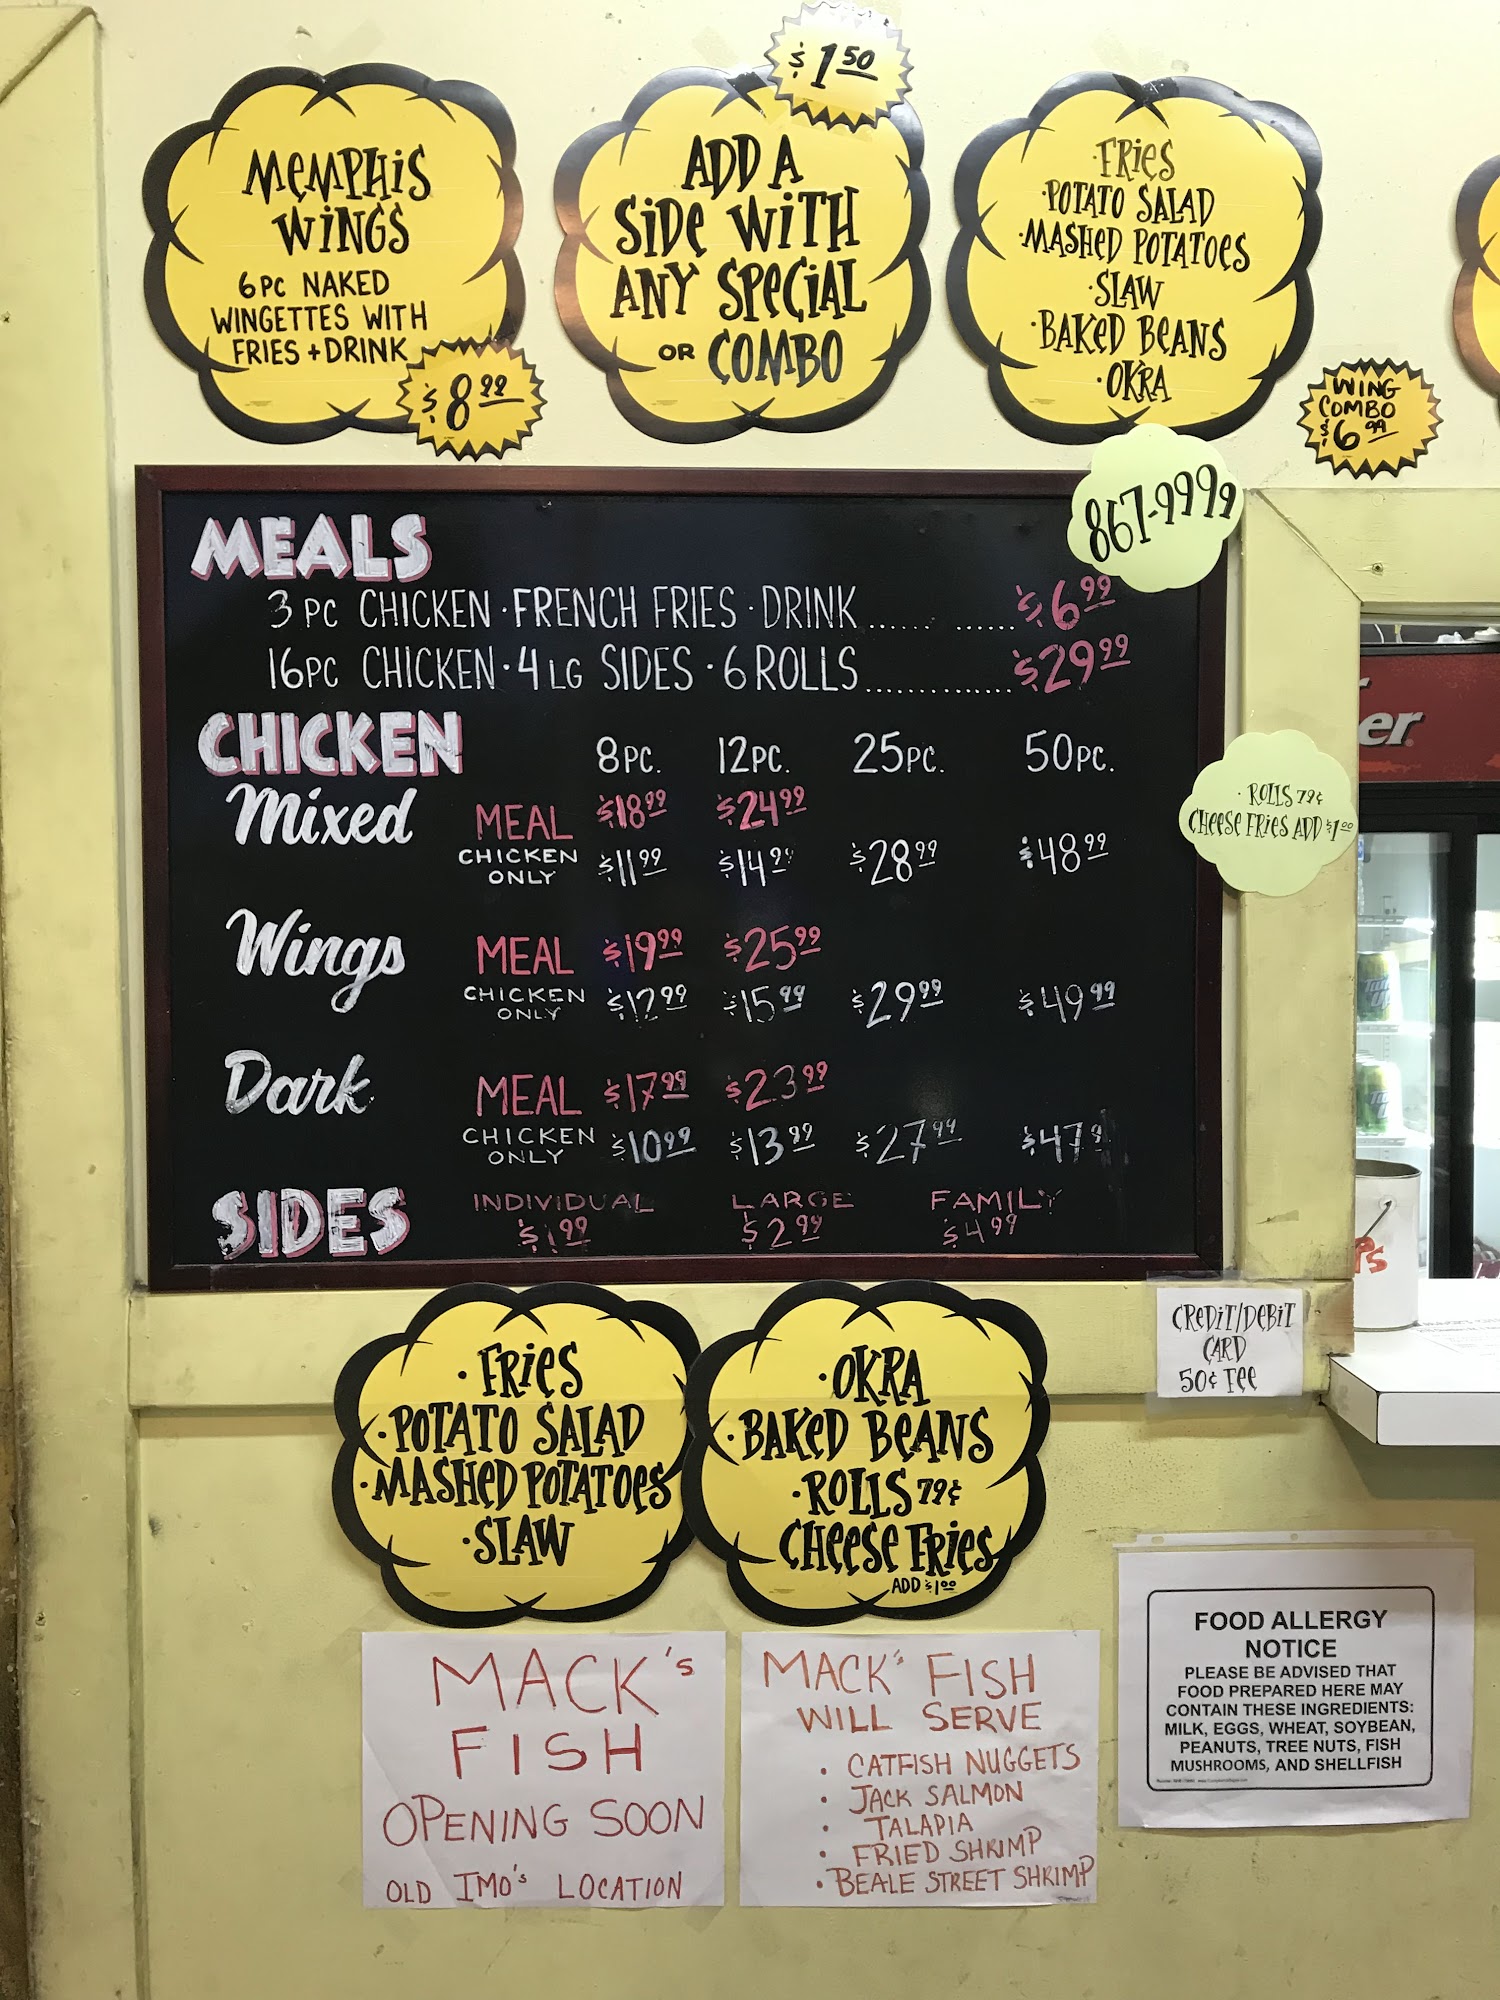 MEMPHIS
WINGS
6 PC NAKED
WINGETTES WITH
FRIES + DRINK
$8.99
$1.50
ADD A
SIDE WITH
ANY SPECIAL
OR COMBO
·FRIES
·POTATO SALAD
·MASHED POTATOES
·SLAW
·BAKED BEANS
·OKRA
WING
COMBO
$6.99
867-9999
MEALS
3 PC CHICKEN·FRENCH FRIES·DRINK...... ......$6.99
16PC CHICKEN·4 LG SIDES·6 ROLLS.............$29.99
CHICKEN 8PC. 12PC. 25PC. 50PC.
Mixed MEAL $18.99 $24.99
CHICKEN ONLY $11.99 $14.99 $28.99 $48.99
Wings MEAL $19.99 $25.99
CHICKEN ONLY $12.99 $15.99 $29.99 $49.99
Dark MEAL $17.99 $23.99
CHICKEN ONLY $10.99 $13.99 $27.99 $47.9
SIDES INDIVIDUAL LARGE FAMILY
$1.99 $2.99 $4.99
· ROLLS 79¢
CHEESE FRIES ADD $1.00
CREDIT/DEBIT
CARD
50¢ FEE
·FRIES
·POTATO SALAD
·MASHED POTATOES
·SLAW
·OKRA
·BAKED BEANS
·ROLLS 79¢
CHEESE FRIES
ADD $1.00
MACK's
FISH
OPENING SOON
OLD IMO's LOCATION
MACK' FISH
WILL SERVE
· CATFISH NUGGETS
· JACK SALMON
· TALAPIA
· FRIED SHRIMP
· BEALE STREET SHRIMP
FOOD ALLERGY
NOTICE
PLEASE BE ADVISED THAT
FOOD PREPARED HERE MAY
CONTAIN THESE INGREDIENTS:
MILK, EGGS, WHEAT, SOYBEAN,
PEANUTS, TREE NUTS, FISH
MUSHROOMS, AND SHELLFISH